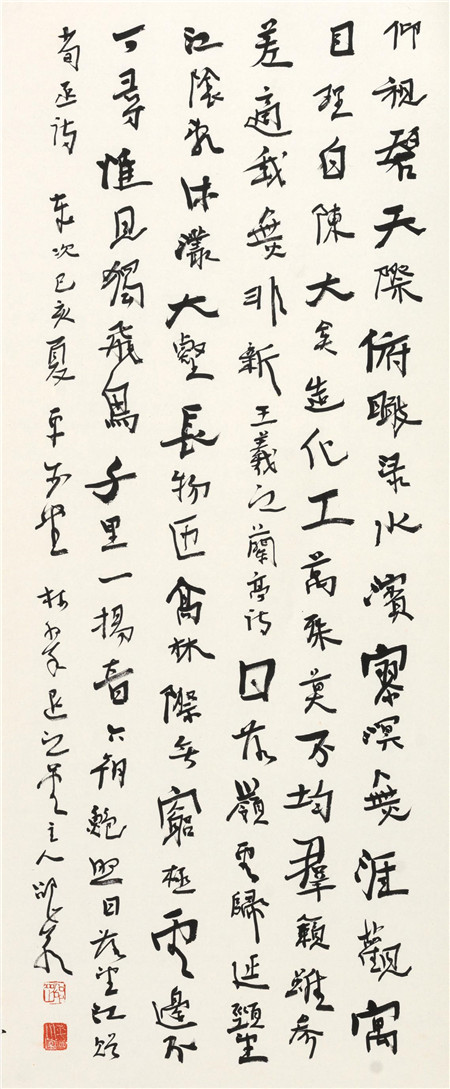 仰視碧天際俯瞰淥水濱寥暝無涯觀寓
目理自陳大矣造化工萬殊莫不均群籟雖參
差適我無非新王羲之蘭亭詩日落嶺雲歸延頸望
江陰亂沭灇大壑長物匝高林際無窮極雲邊不
可尋惟見獨飛鳥千里一揚音六朝鮑照日落望江贈
荀丞詩 歲次己亥夏 主人